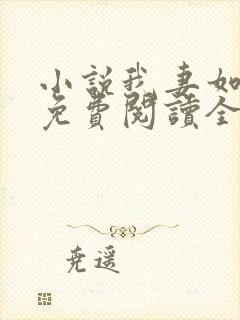 小说我妻如
免費閱讀全
尧遥